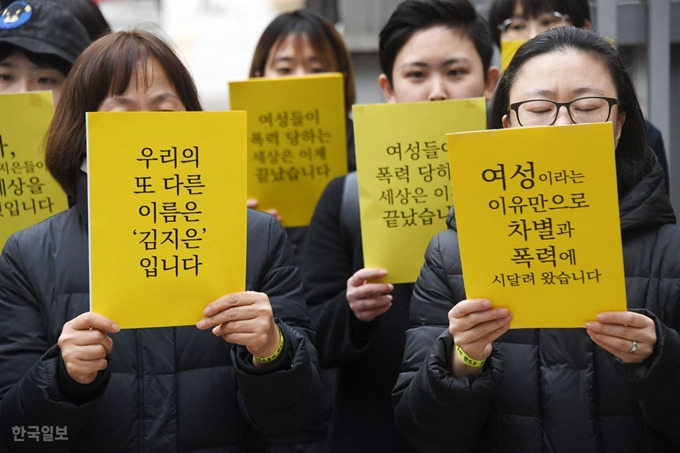 우리의
또 다른
이름은
‘김지은’
입니다
여성들이
폭력 당하는
세상은 이제
끝났습니다
여성들
폭력 당하
세상은 이
끝났습
여성이라는
이유만으로
차별과
폭력에
시달려 왔습니다
지은들이
세상을
입니다
한국일보